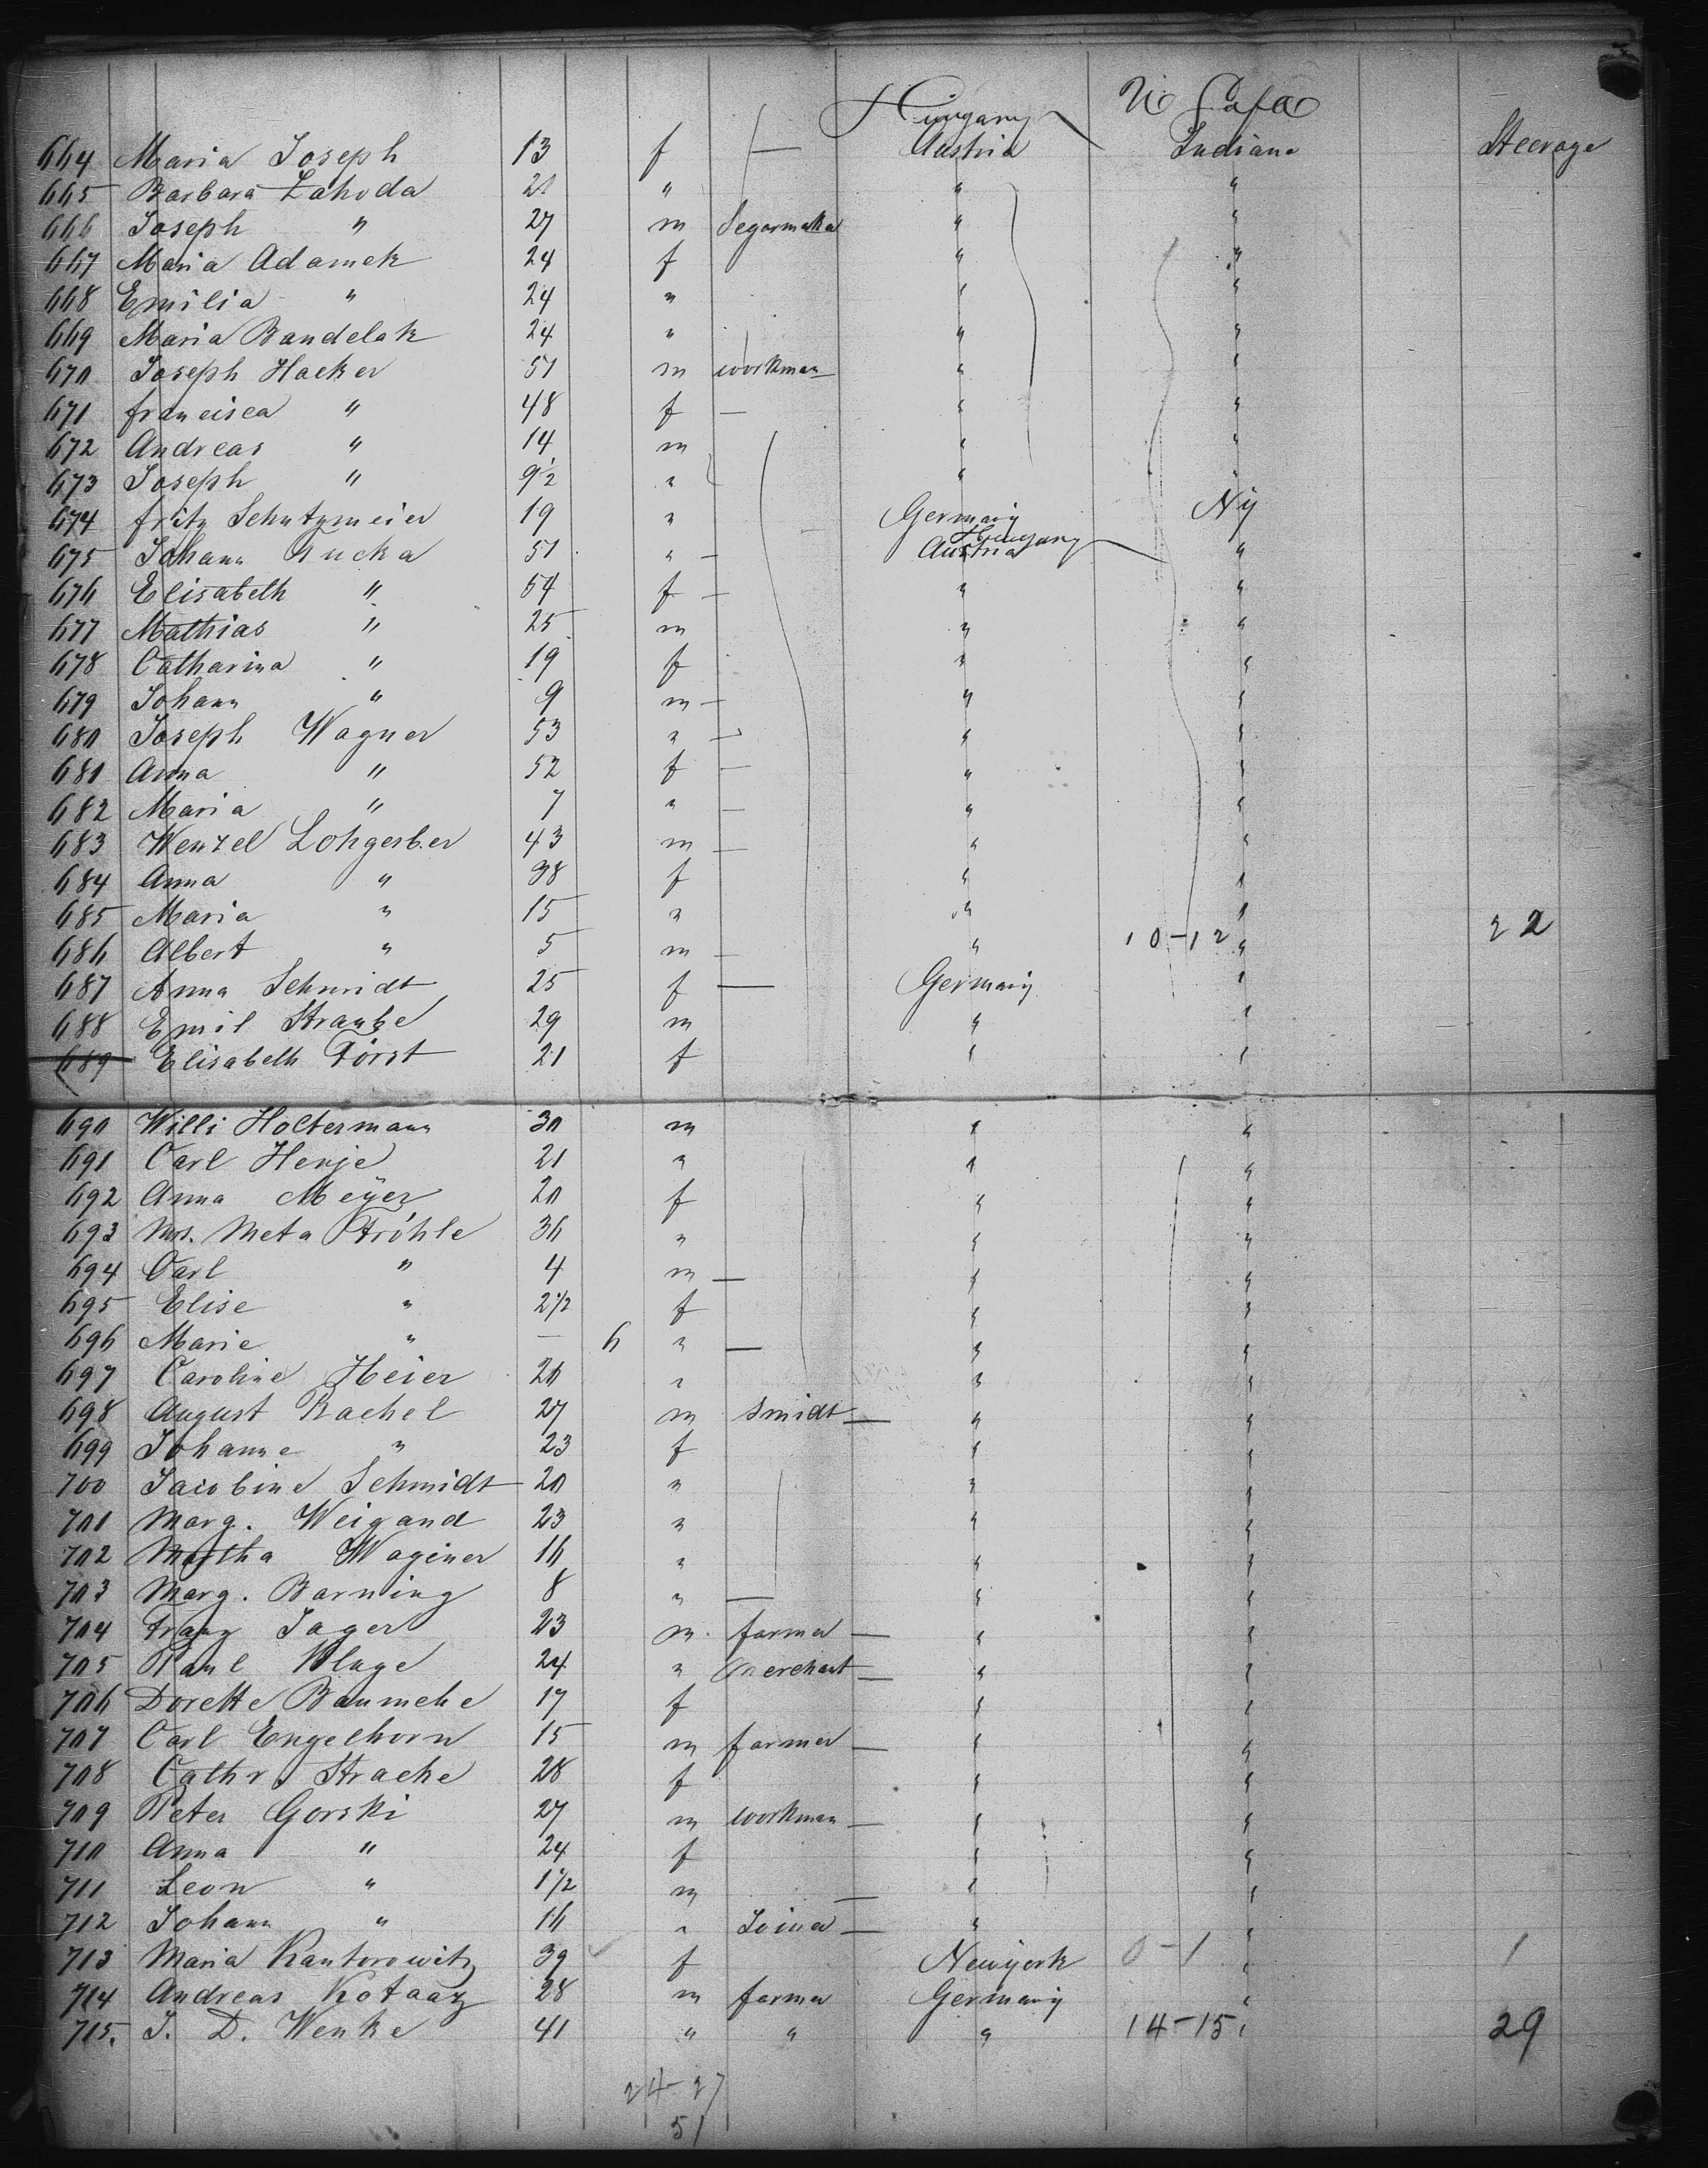 Hungary
664 Maria Joseph 13 f — Austria Indiana Steerage
665 Barbara Zahoda 21 " " "
666 Joseph " 27 m Segarmaker " "
667 Maria Adamek 24 f " "
668 Emilia " 24 " " "
669 Maria Bandelak 24 " " "
670 Joseph Hacker 51 m workman " "
671 francisca " 48 f — " "
672 Andreas " 14 m " "
673 Joseph " 9 1/2 " " "
674 fritz Schutzmeier 19 " Germany Ny
Hungary
675 Johann 51 " — Austria "
676 Elisabeth " 54 f — " "
677 Mathias " 25 m " "
678 Catharina " 19 f " "
679 Johann " 9 m — " "
680 Joseph Wagner 53 " — " "
681 Anna " 52 f — " "
682 Maria " 7 " — " "
683 Wenzel Lohgerber 43 m — " "
684 Anna " 38 f " "
685 Maria " 15 " " "
686 Albert " 5 m — " 10-12 " 22
687 Anna Schmidt 25 f — Germany "
688 Emil Straube 29 m " "
689 Elisabeth Först 21 f " "
690 Willi Holtermann 30 m " "
691 Carl Henje 21 " " "
692 Anna Meÿer 20 f " "
693 Mrs. Meta Ströhle 36 " " "
694 Carl " 4 m — " "
695 Elise " 2 1/2 f " "
696 Marie " — 6 " — " "
697 Caroline Heier 20 " " "
698 August Rachel 27 m smidt — " "
699 Johanne " 23 f " "
700 Jacobine Schmidt 20 " " "
701 Marg. Weigand 23 " " "
702 Martha Waginer 16 " " "
703 Marg. Barning 8 " — " "
704 Franz Jager 23 m. farmer — " "
705 Paul Kluge 24 " merchant — " "
706 Dorette Baumeke 17 f " "
707 Carl Engelhorn 15 m farmer — " "
708 Cathr. Stracke 28 f " "
709 Peter Gorski 27 m workman — " "
710 Anna " 24 f " "
711 Leon " 1 1/2 m — " "
712 Johann " 16 " Joiner — " "
713 Maria Kantorowitz 39 f Newyork 0-1 " 1
714 Andreas 28 m farmer Germany "
715. J. D. Wenke 41 " " " 14-15 " 29
24-27
51